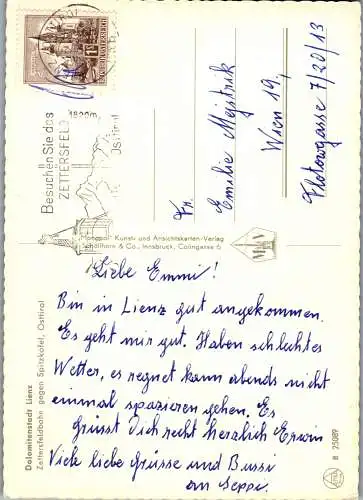 Besuchen Sie das
ZETTERSFELD
1820m
Osttirol
REPUBLIK ÖSTERREICH
Fr.
Emilie Mejstrik
Wien 19,
Flotowgasse 7/20/13
"Monopol" Kunst- und Ansichtskarten-Verlag
Schöllhorn & Co., Innsbruck, Colingasse 6
Liebe Emmi!
Bin in Lienz gut angekommen.
Es geht mir gut. Haben schlechtes
Wetter, es regnet kann abends nicht
einmal spazieren gehen. Es
Grüsst Dich recht herzlich Erwin
Viele liebe Grüsse und Bussi
an Seppi
Dolomitenstadt Lienz
Zettersfeldbahn gegen Spitzkofel, Osttirol
B 25089